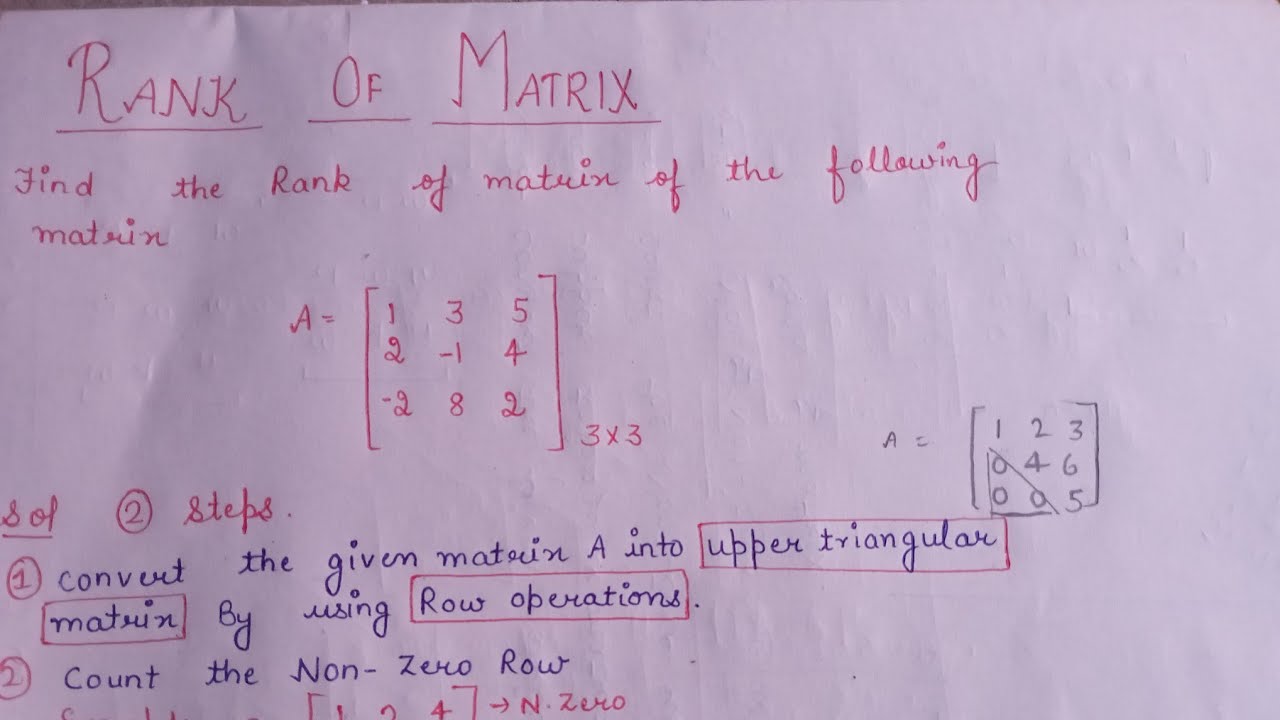 RANK OF MATRIX
Find the Rank of matrix of the following
matrix
A = [1 3 5
2 -1 4
-2 8 2] 3×3
A = [1 2 3
0 4 6
0 0 5]
Sol ② Steps.
① convert the given matrix A into upper triangular
matrix By using Row operations.
② Count the Non-Zero Row
[1 2 4] → N.Zero